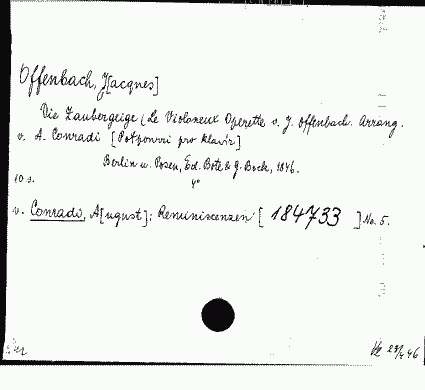 Offenbach, J[acques]
Die Zaubergeige (Le Violoneux Operette v. J. Offenbach. Arrang.
v. A. Conradi [Potpourri pro klavír]
Berlin u. Posen, Ed. Bote & G. Bock, 1846.
10 s. 4°
v. Conradi, A[ugust]: Reminiscenzen [184733] No. 5.